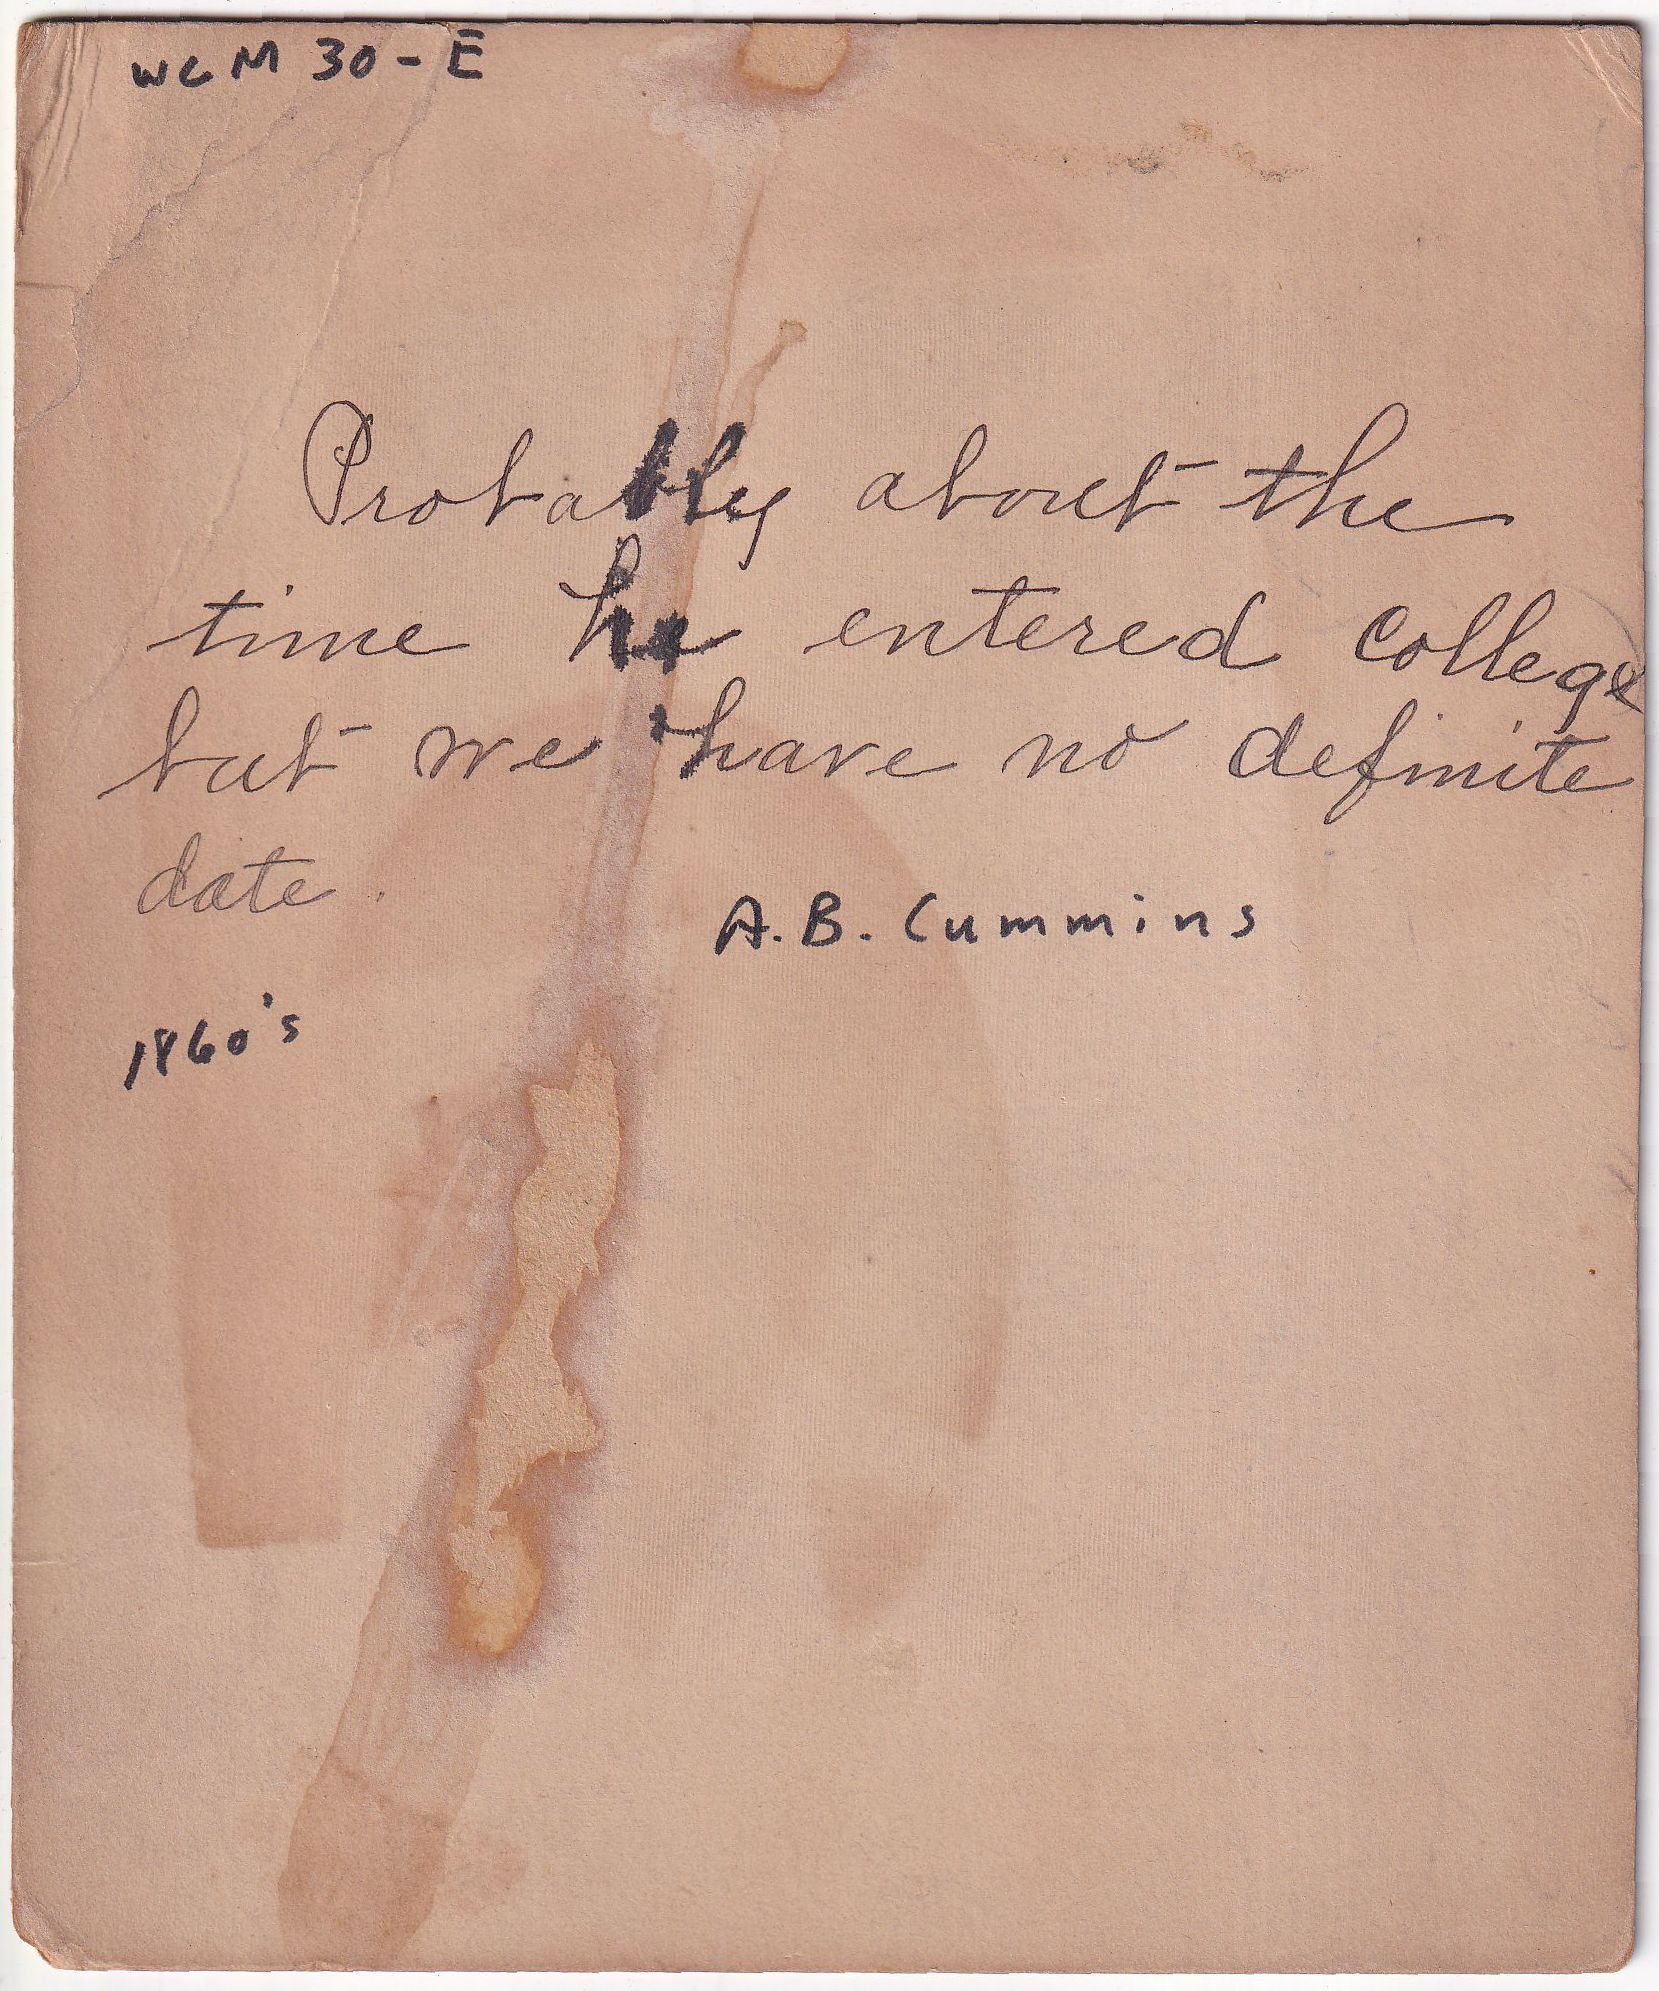 WCM 30-E
Probably about the
time he entered college
but we have no definite
date.
A.B. Cummins
1860's